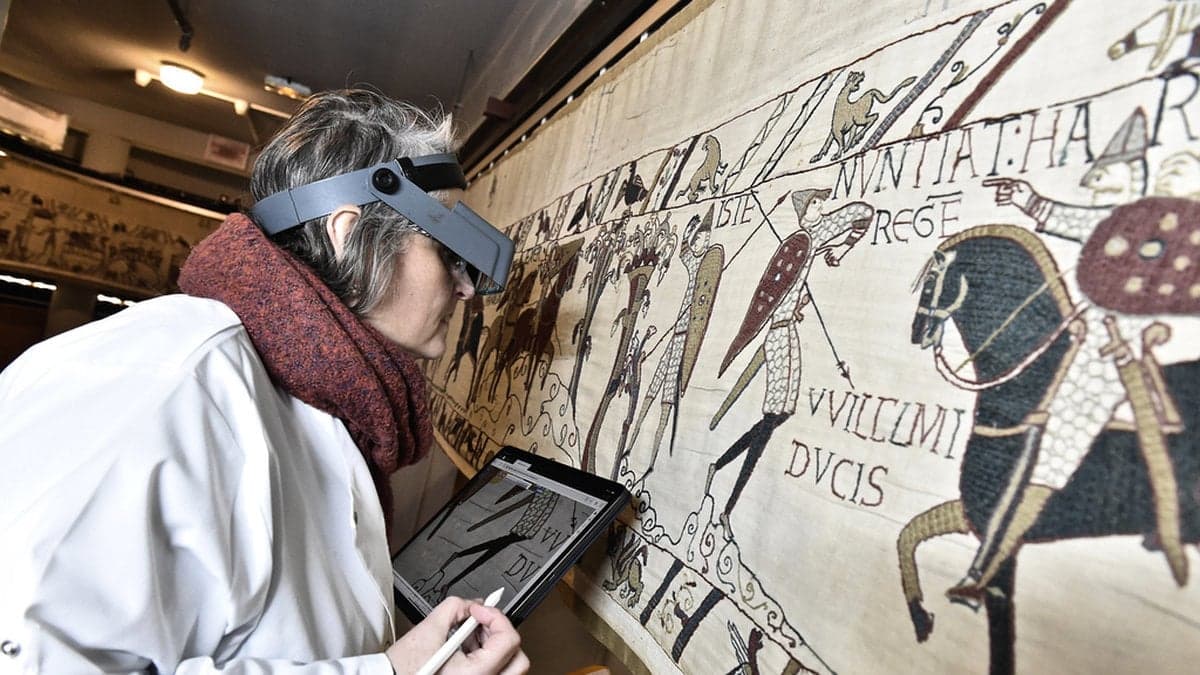 ISTE NVNTIAT:HAR
REGĒ
VVILELMI
DVCIS
VV
DV